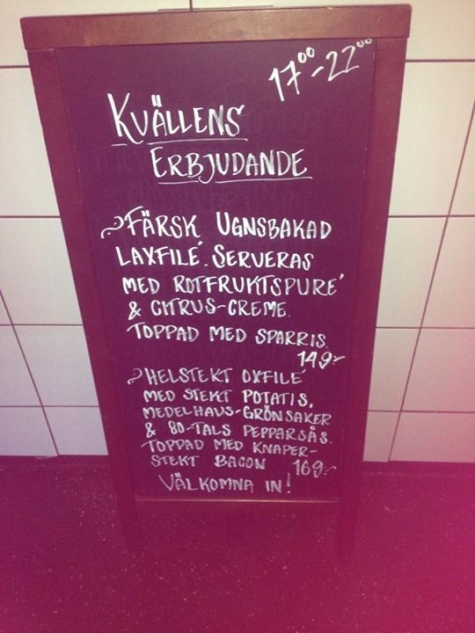 17⁰⁰-22⁰⁰
KVÄLLENS
ERBJUDANDE
FÄRSK UGNSBAKAD
LAXFILÉ. SERVERAS
MED ROTFRUKTSPURÉ
& CITRUS-CREME.
TOPPAD MED SPARRIS.
149:-
HELSTEKT OXFILÉ
MED STEKT POTATIS,
MEDELHAUS-GRÖNSAKER
& 80-TALS PEPPARSÅS.
TOPPAD MED KNAPER-
STEKT BACON 169:-
VÄLKOMNA IN!